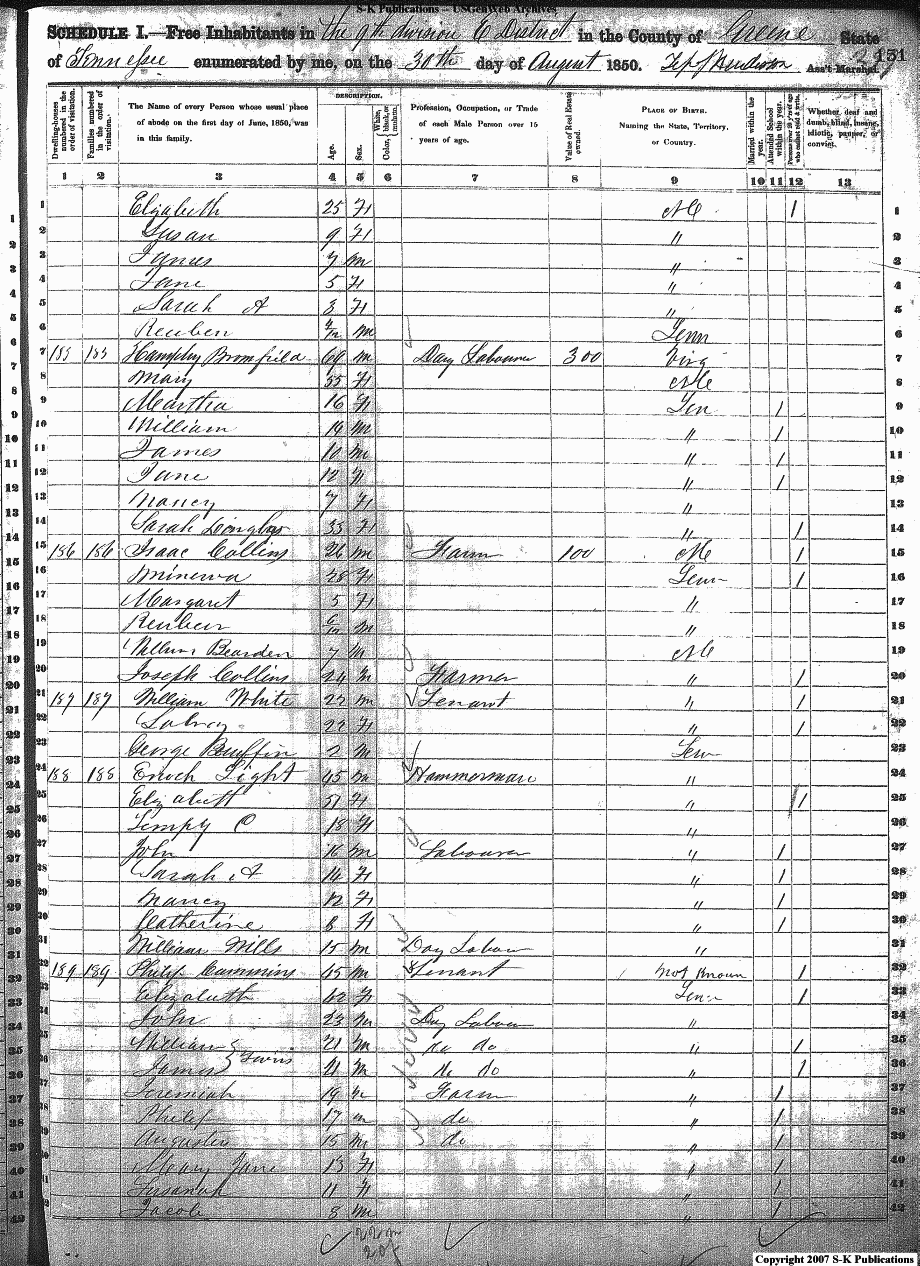 S-K Publications – USGenWeb Archives
SCHEDULE I.—Free Inhabitants in the 9th division E District in the County of Greene State
of Tennessee enumerated by me, on the 30th day of August 1850. Ass't Marshal.
151
Dwelling-houses numbered in the order of visitation.
Families numbered in the order of visitation.
The Name of every Person whose usual place of abode on the first day of June, 1850, was in this family.
DESCRIPTION.
Age.
Sex.
Color, White, black, or mulatto.
Profession, Occupation, or Trade of each Male Person over 15 years of age.
Value of Real Estate owned.
PLACE OF BIRTH.
Naming the State, Territory, or Country.
Married within the year.
Attended School within the year.
Persons over 20 y'rs of age who cannot read & write.
Whether deaf and dumb, blind, insane, idiotic, pauper, or convict.
1 2 3 4 5 6 7 8 9 10 11 12 13
1 Elizabeth 25 F NC / 1
2 Susan 9 F " 2
3 James 7 m " 3
4 Jane 5 F " 4
5 Sarah A 3 F " 5
6 Reuben m Tenn 6
7 185 185 Bromfield 69 m Day Labourer 300 Virg 7
8 Mary 55 F NC 8
9 Martha 16 F Ten / 9
10 William 14 m " / 10
11 James 10 m " / 11
12 Jane 12 F " / 12
13 Nancy 7 F " 13
14 Sarah Douglas 33 F " / 14
15 186 186 Isaac Collins 26 m Farm 100 NC / 15
16 Minerva 28 F Tenn / 16
17 Margaret 5 F " 17
18 Reuben 6/12 m " 18
19 William Bearden 7 m NC 19
20 Joseph Collins 24 m Farmer " / 20
21 187 187 William White 22 m Tenant " / 21
22 22 F " / 22
23 George 2 m Ten 23
24 188 188 Enoch Light 45 m Hammerman " 24
25 Elizabeth 51 F " / 25
26 Tempy C 18 F " 26
27 John 16 m Labourer " / 27
28 Sarah A 14 F " / 28
29 Nancy 12 F " / 29
30 Catherine 8 F " / 30
31 William Wills 15 m Day Labour " 31
32 189 189 Philip Cummins 45 m Tenant Not Known / 32
33 Elizabeth 42 F Tenn / 33
34 John 23 m Day Labour " 34
35 William } Twins 21 m do do " / 35
36 James 21 m do do " / 36
37 Jeremiah 19 m Farm " / 37
38 Philip 17 m do " / 38
39 Augustus 15 m do " / 39
40 Mary Jane 13 F " / 40
41 Susanah 11 F " / 41
42 Jacob 8 m " / 42
22 m
20 f
Copyright 2007 S-K Publications